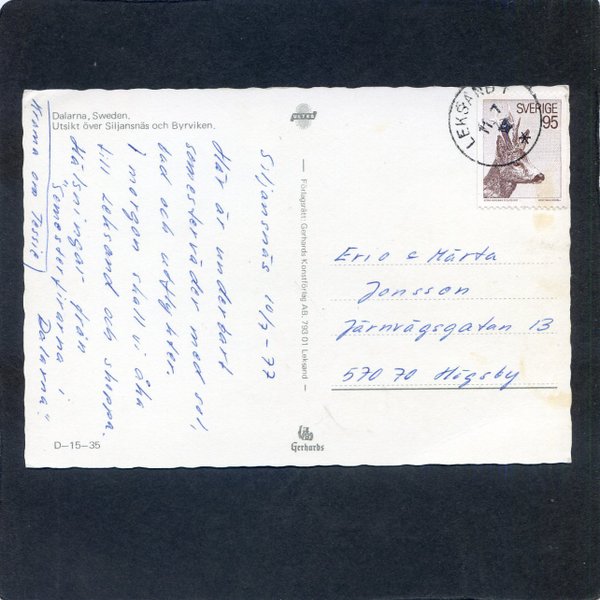 Dalarna, Sweden.
Utsikt över Siljansnäs och Byrviken.
ULTRA
Siljansnäs 10/7-77
Här är underbart
semesterväder med sol,
bad och utflykter.
I morgon skall vi åka
till Leksand och shoppa.
Hälsningar från
"Semesterfirarna i
Dalarna".
Krama om Jessie
D-15-35
— Förlagsrätt: Gerhards Konstförlag AB, 793 01 Leksand —
Gerhards
LEKSAND 1
11 7
SVERIGE
95
Eric & Märta
Jonsson
Järnvägsgatan 13
570 70 Högsby